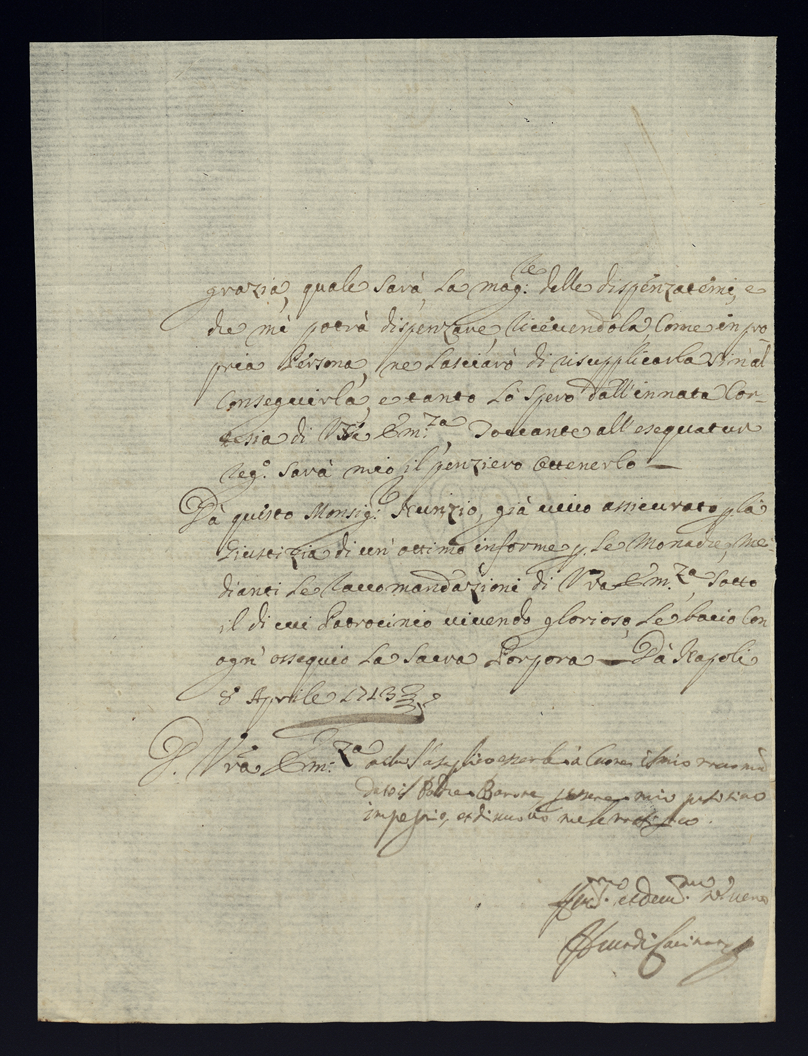 grazia, quale sarà la mag.re delle dispenzatemi, e
che mi potrà dispenzare, ricevendola come in pro
pria Persona, ne lasciarò di risupplicarla sin'al
conseguirla, e tanto lo spero dall'innata Cor-
tesia di Vra Em.za, Toccante all'esequatur
reg.o sarà mio il penziero ottenerlo —
Dà questo Monsig.r Nunzio, già vivo assicurato p la
Giustizia di un' ottimo informe p. le Monache, me-
dianti le raccomandazioni di Vra Em.za, sotto
il di cui Patrocinio vivendo glorioso, le bacio con
ogn' ossequio la Sacra Porpora — Dà Napoli
8 Aprile 1713
D. Vra Em.za
Padre Barone mio
impegno, et di nuovo